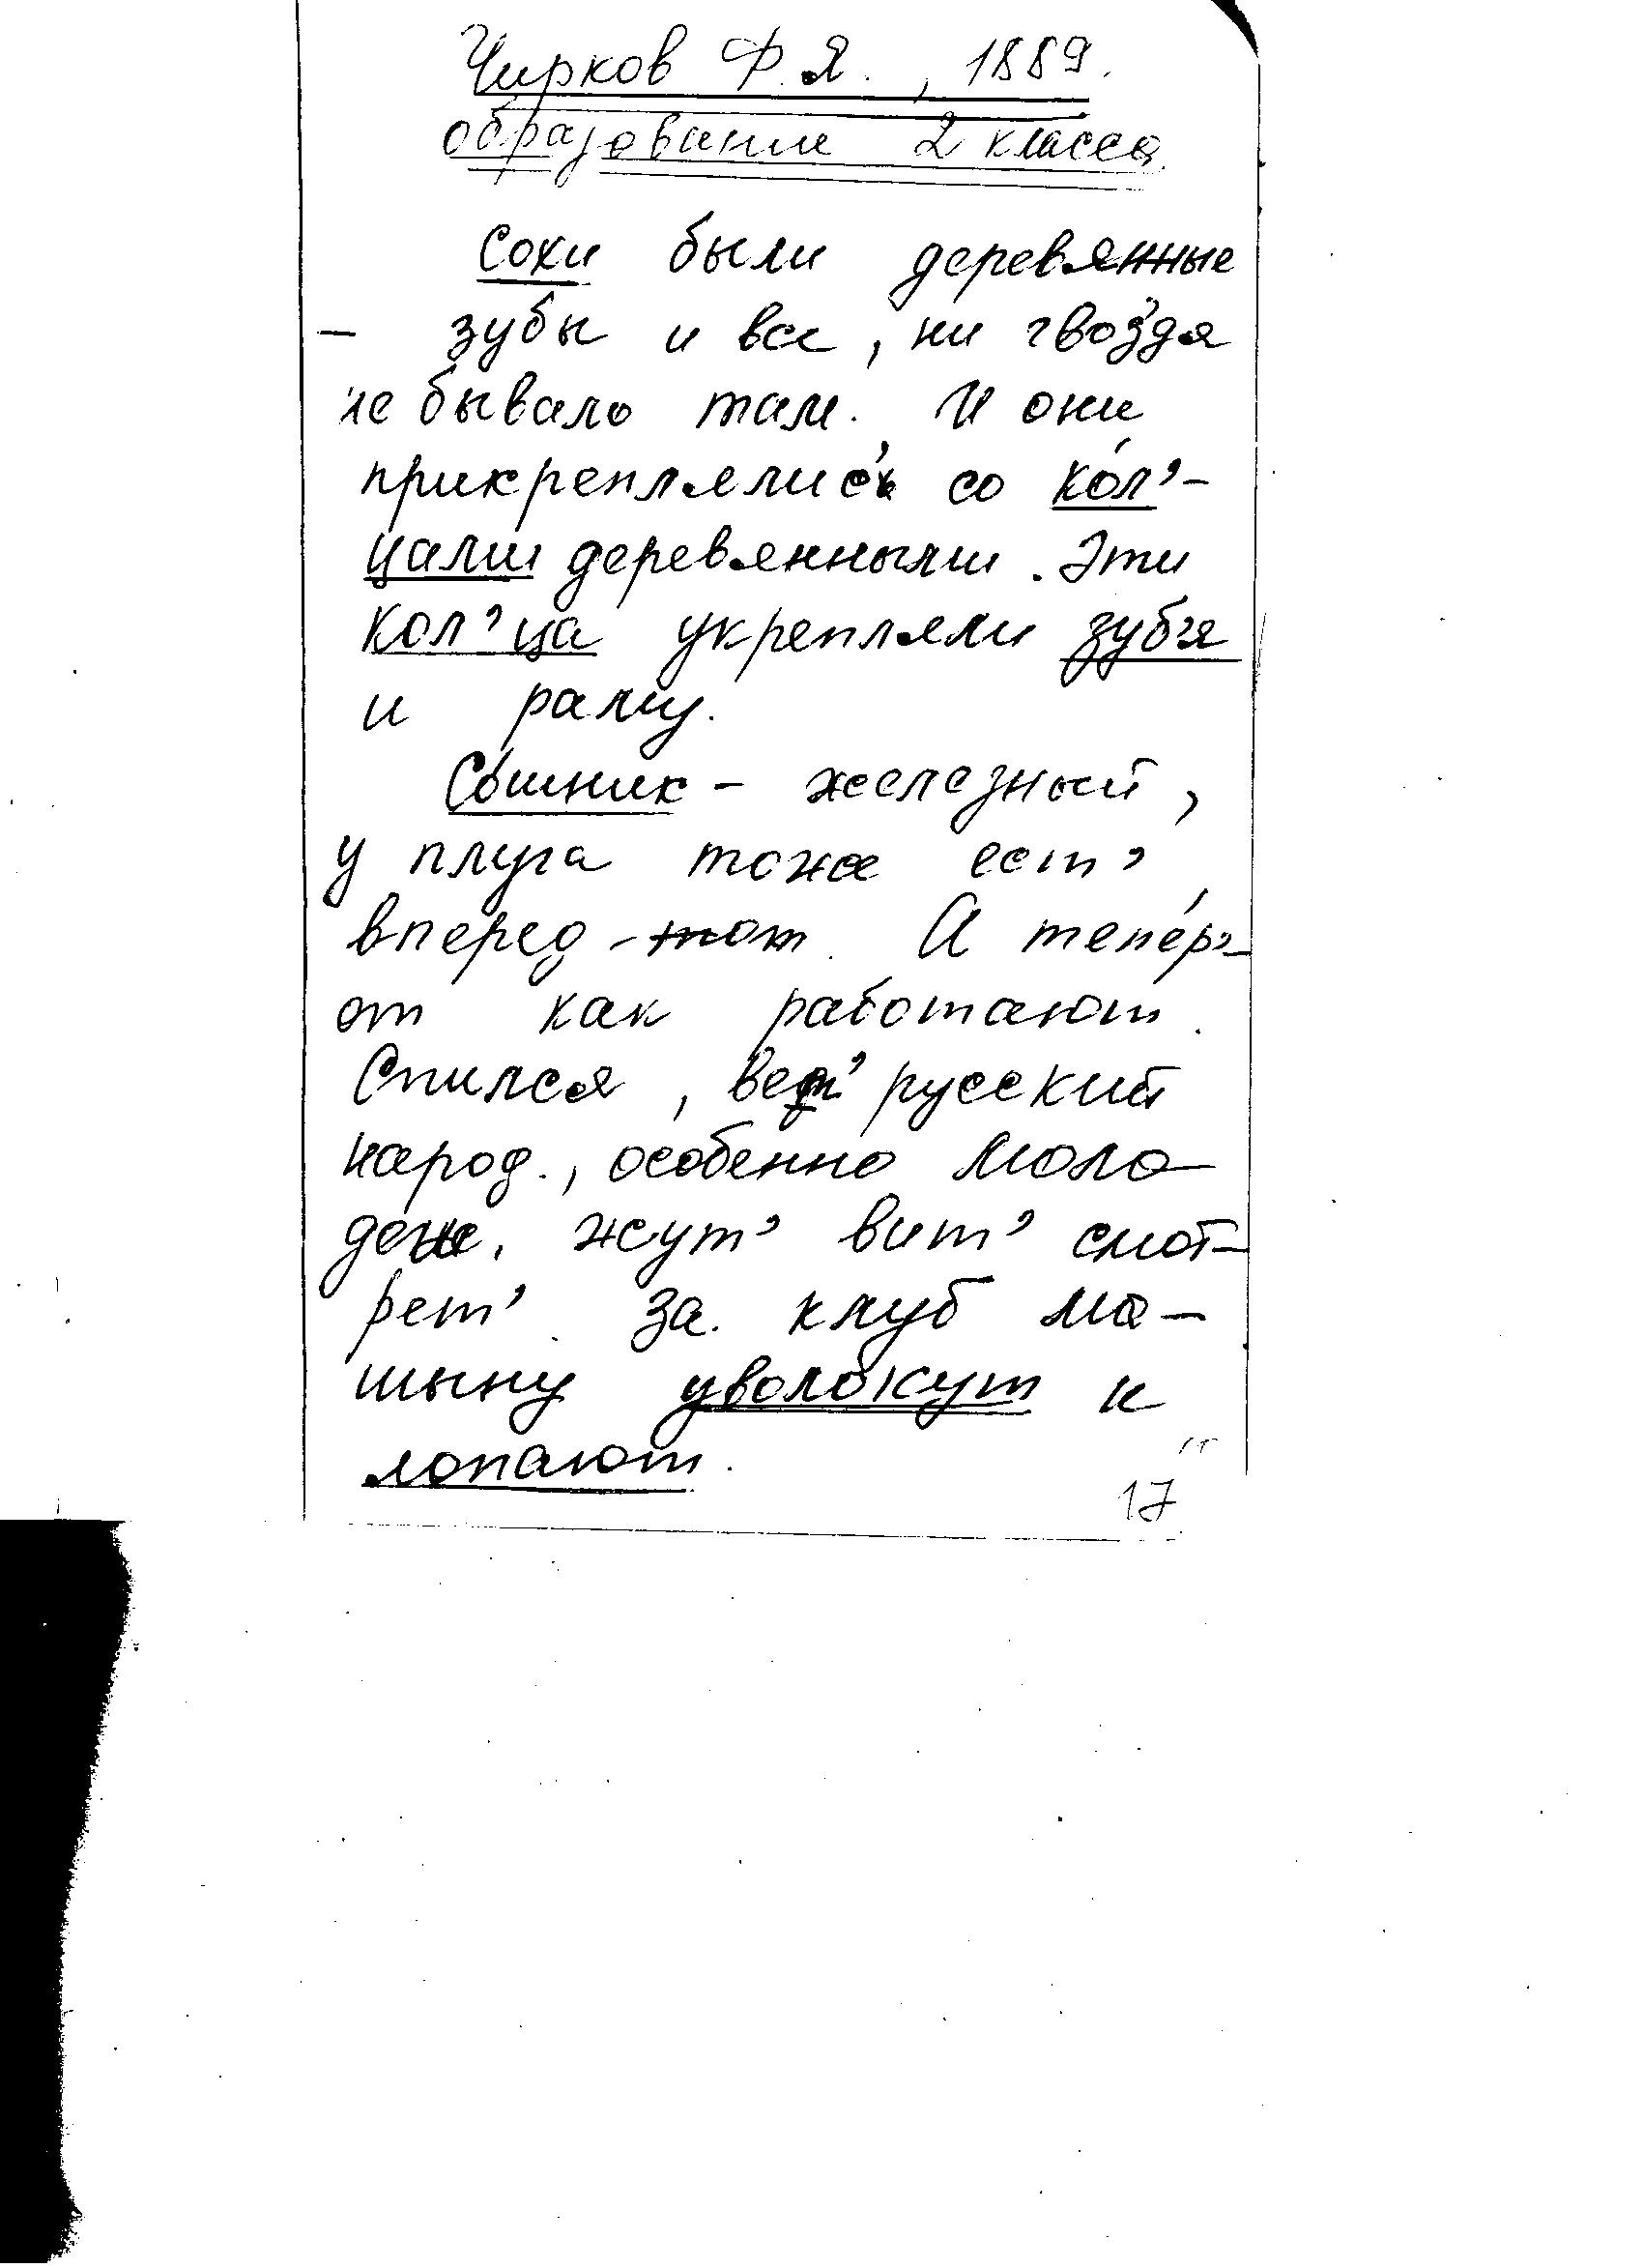 Чирков Ф.Я., 1889.
образование 2 класса
Сохи были деревянные
– зубы и все, ни гвоздя
не бывало там. И они
прикреплялис'и со ко́л'-
цами деревянными. Эти
кол'ца укрепляли зуб'я
и раму.
Со́шник – железный,
у плуга тоже ест'
вперед-тот. А тепе́р'-
от как работают.
Спился, вед' русский
народ., особенно моло-
дежь. жут' вит' смот-
рет'. за. клуб ма-
шыну уволокут и
лопают.
17